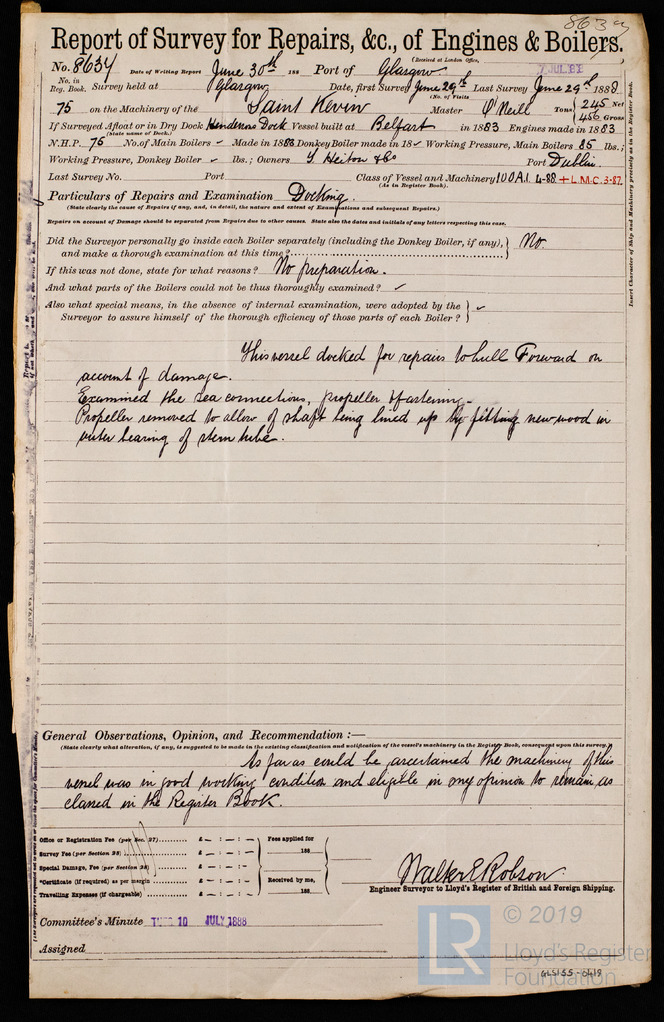 8634
Report of Survey for Repairs, &c., of Engines & Boilers.
(Received at London Office,
No. 8634 Date of Writing Report June 30th 188 Port of Glasgow 7 JUL 88
No. in Reg. Book. Survey held at Glasgow Date, first Survey June 29th Last Survey June 29th 1888
(No. of Visits
75 on the Machinery of the Saint Kevin Master O'Neill Tons 245 Net 456 Gross
If Surveyed Afloat or in Dry Dock Hendersons Dock Vessel built at Belfast in 1883 Engines made in 1883
(State name of Dock.)
N.H.P. 75 No. of Main Boilers ✓ Made in 1883 Donkey Boiler made in 18 ✓ Working Pressure, Main Boilers 85 lbs.;
Working Pressure, Donkey Boiler ✓ lbs.; Owners T Heiton & Co Port Dublin
Last Survey No. Port Class of Vessel and Machinery 100A.1. 4-88 + L.M.C. 3-87.
(As in Register Book).
Particulars of Repairs and Examination Docking.
(State clearly the cause of Repairs if any, and, in detail, the nature and extent of Examinations and subsequent Repairs.)
Repairs on account of Damage should be separated from Repairs due to other causes. State also the dates and initials of any letters respecting this case.
Did the Surveyor personally go inside each Boiler separately (including the Donkey Boiler, if any), and make a thorough examination at this time? No
If this was not done, state for what reasons? No preparation.
And what parts of the Boilers could not be thus thoroughly examined? ✓
Also what special means, in the absence of internal examination, were adopted by the Surveyor to assure himself of the thorough efficiency of those parts of each Boiler? ✓
This vessel docked for repairs to hull Forward on
account of damage.
Examined the sea connections, propeller & fastening.
Propeller removed to allow of shaft being lined up by fitting new wood in
outer bearing of stern tube.
General Observations, Opinion, and Recommendation :—
(State clearly what alteration, if any, is suggested to be made in the existing classification and notification of the vessel's machinery in the Register Book, consequent upon this survey.)
As far as could be ascertained the machinery of this
vessel was in good working condition and eligible in my opinion to remain as
classed in the Register Book.
Office or Registration Fee (per Sec. 27) £ - : - : - Fees applied for
Survey Fee (per Section 28) £ - : - : - 188
Special Damage, Fee (per Section 28) £ - : - : -
*Certificate (if required) as per margin £ - : - : - Received by me,
Travelling Expenses (if chargeable) £ - : - : - 188
Walter E Robson.
Engineer Surveyor to Lloyd's Register of British and Foreign Shipping.
Committee's Minute TUES 10 JULY 1888
Assigned
Insert Character of Ship and Machinery precisely as in the Register Book.
LR © 2019
Lloyd's Register
Foundation
GLS155-0419